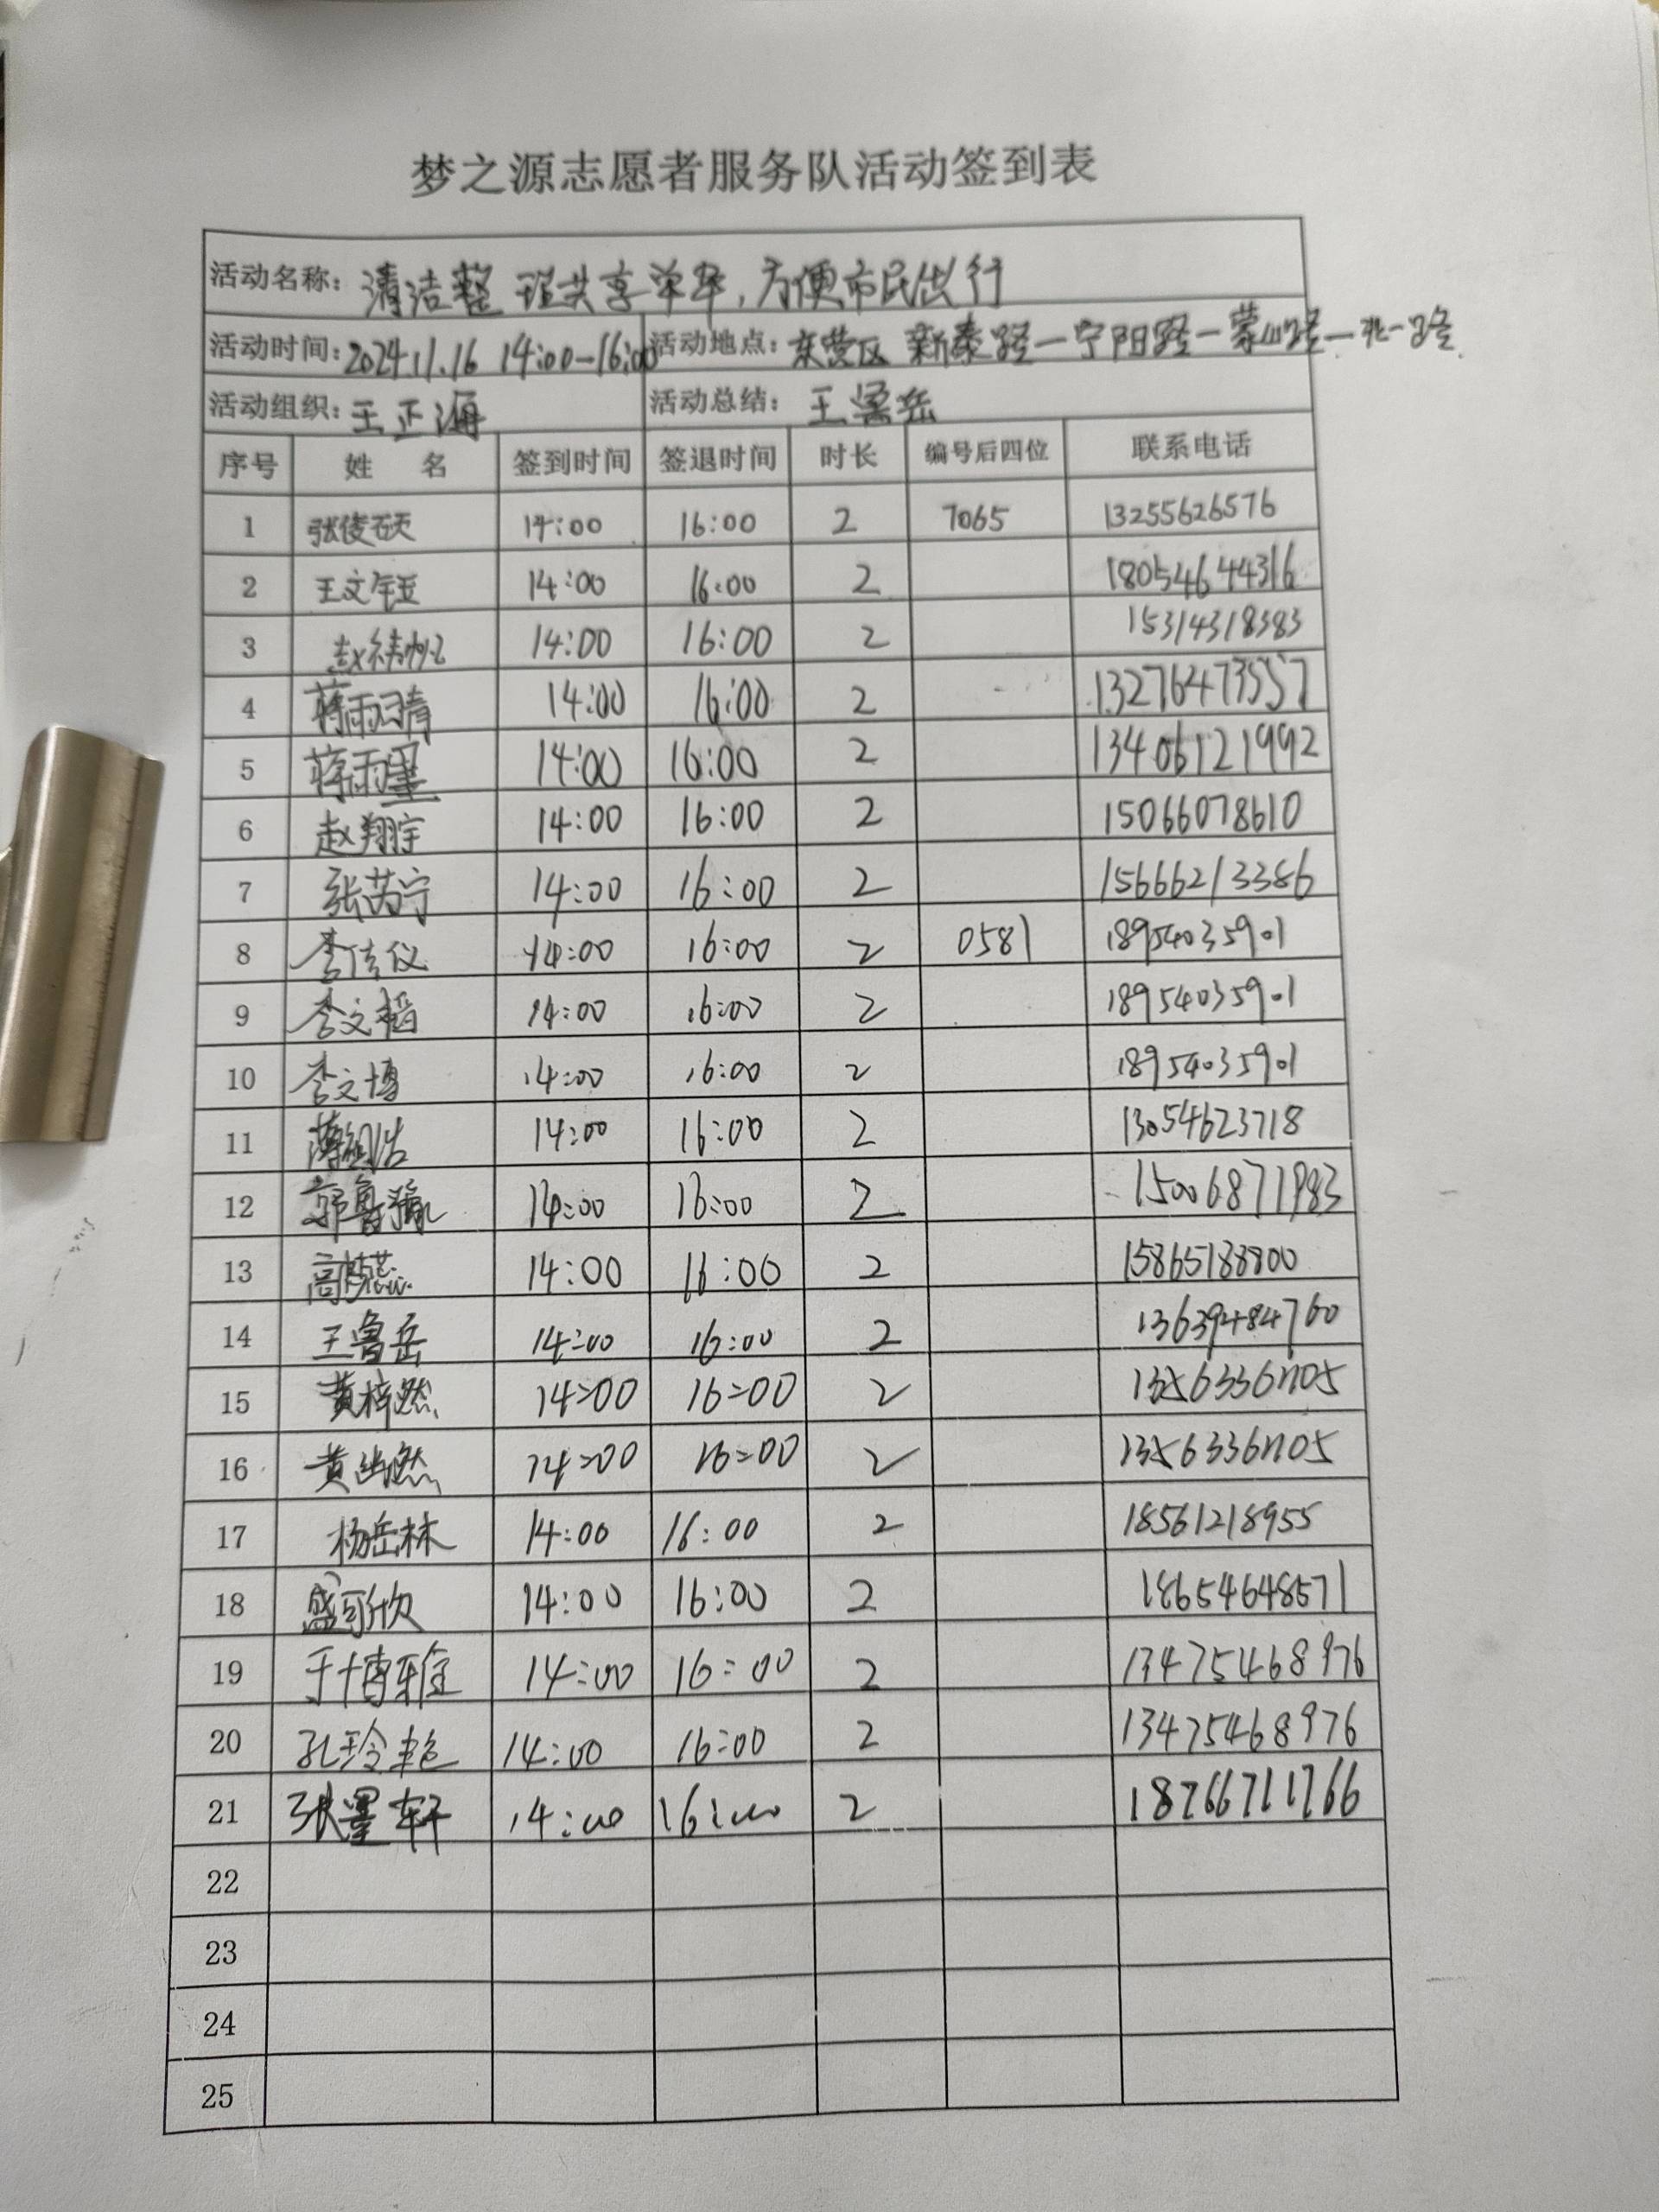 梦之源志愿者服务队活动签到表
活动名称：清洁整理共享单车，方便市民出行
活动时间：2024.11.16 14:00-16:00 活动地点：东营区 新泰路一宁阳路一蒙山路一北一路
活动组织：王正海 活动总结：王鲁岳
序号 姓 名 签到时间 签退时间 时长 编号后四位 联系电话
1 张俊硕 14:00 16:00 2 7065 13255626576
2 王文钰 14:00 16:00 2 18054644316
3 14:00 16:00 2 15314318383
4 蒋雨晴 14:00 16:00 2 13276473557
5 蒋雨墨 14:00 16:00 2 13406121992
6 赵翔宇 14:00 16:00 2 15066078610
7 张芮宁 14:00 16:00 2 15666213386
8 李佳仪 14:00 16:00 2 0581 18954035901
9 李文韬 14:00 16:00 2 18954035901
10 李文博 14:00 16:00 2 18954035901
11 14:00 16:00 2 13054623718
12 14:00 16:00 2 15006871983
13 14:00 16:00 2 15865188800
14 王鲁岳 14:00 16:00 2 13639484760
15 黄梓然 14:00 16:00 2
16 14:00 16:00 2
17 杨岳林 14:00 16:00 2 18561218955
18 盛可欣 14:00 16:00 2 18654648571
19 于博雅 14:00 16:00 2 13475468976
20 孔玲艳 14:00 16:00 2 13475468976
21 张墨轩 14:00 16:00 2 18766711766
22
23
24
25